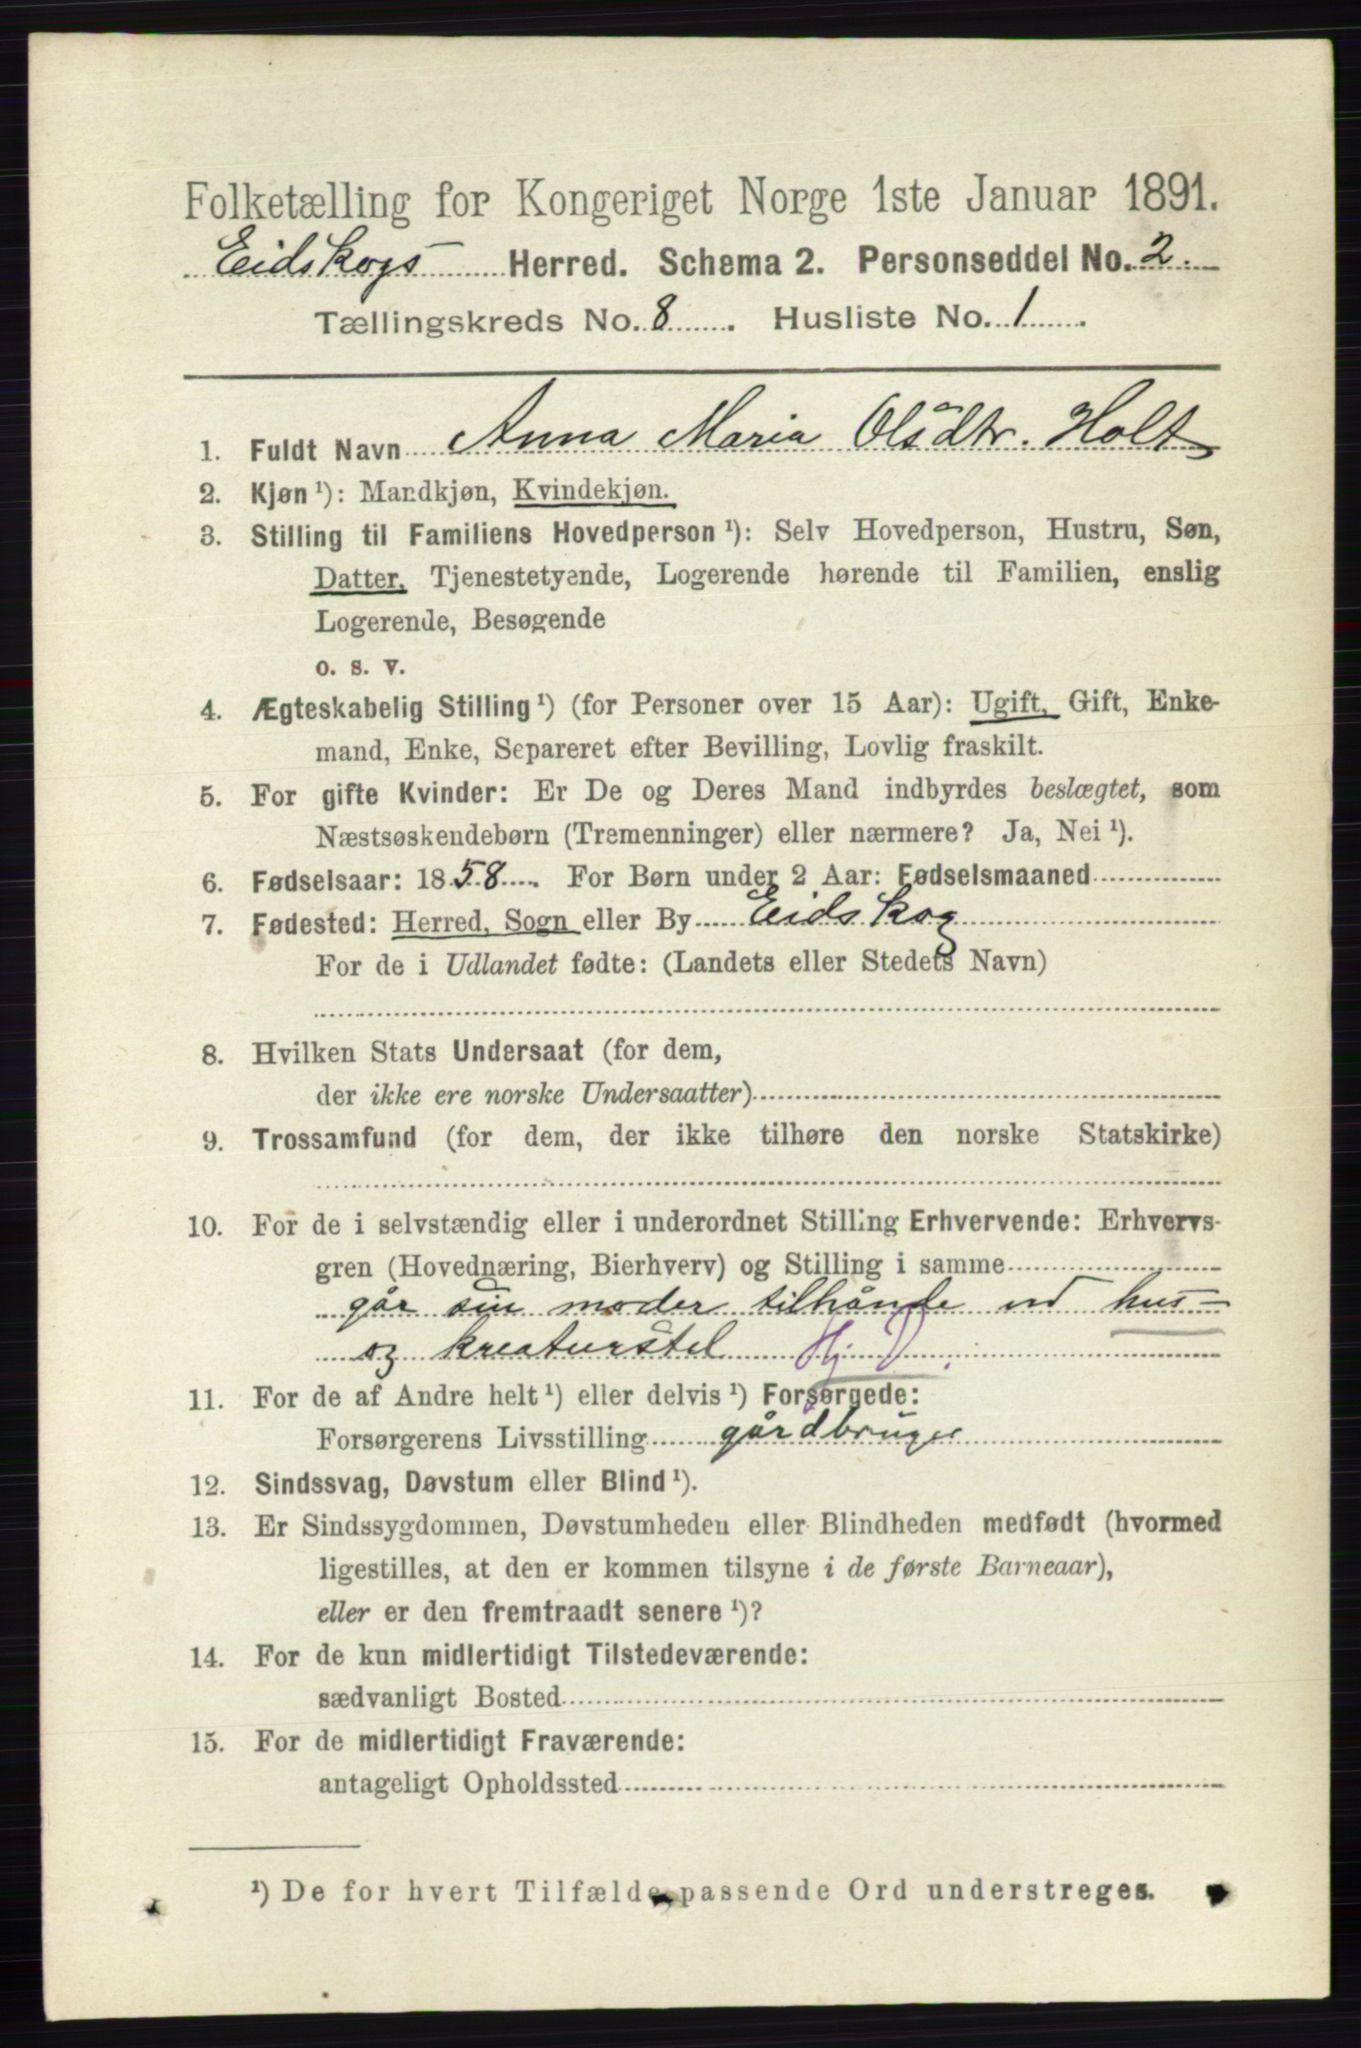 Folketælling for Kongeriget Norge 1ste Januar 1891.
Eidskogs Herred. Schema 2. Personseddel No. 2.
Tællingskreds No. 8. Husliste No. 1.
1. Fuldt Navn Anna Maria Olsdtr. Holt
2. Kjøn ¹): Mandkjøn, Kvindekjøn.
3. Stilling til Familiens Hovedperson ¹): Selv Hovedperson, Hustru, Søn,
Datter, Tjenestetyende, Logerende hørende til Familien, enslig
Logerende, Besøgende
o. s. v.
4. Ægteskabelig Stilling ¹) (for Personer over 15 Aar): Ugift, Gift, Enke-
mand, Enke, Separeret efter Bevilling, Lovlig fraskilt.
5. For gifte Kvinder: Er De og Deres Mand indbyrdes beslægtet, som
Næstsøskendebørn (Tremenninger) eller nærmere? Ja, Nei ¹).
6. Fødselsaar: 1858. For Børn under 2 Aar: Fødselsmaaned
7. Fødested: Herred, Sogn eller By Eidskog
For de i Udlandet fødte: (Landets eller Stedets Navn)
8. Hvilken Stats Undersaat (for dem,
der ikke ere norske Undersaatter)
9. Trossamfund (for dem, der ikke tilhøre den norske Statskirke)
10. For de i selvstændig eller i underordnet Stilling Erhvervende: Erhvervs-
gren (Hovednæring, Bierhverv) og Stilling i samme
går sin moder tilhånde ved hus-
og kreaturstel Hj. D.
11. For de af Andre helt ¹) eller delvis ¹) Forsørgede:
Forsørgerens Livsstilling gårdbruger
12. Sindssvag, Døvstum eller Blind ¹).
13. Er Sindssygdommen, Døvstumheden eller Blindheden medfødt (hvormed
ligestilles, at den er kommen tilsyne i de første Barneaar),
eller er den fremtraadt senere ¹)?
14. For de kun midlertidigt Tilstedeværende:
sædvanligt Bosted
15. For de midlertidigt Fraværende:
antageligt Opholdssted
¹) De for hvert Tilfælde passende Ord understreges.